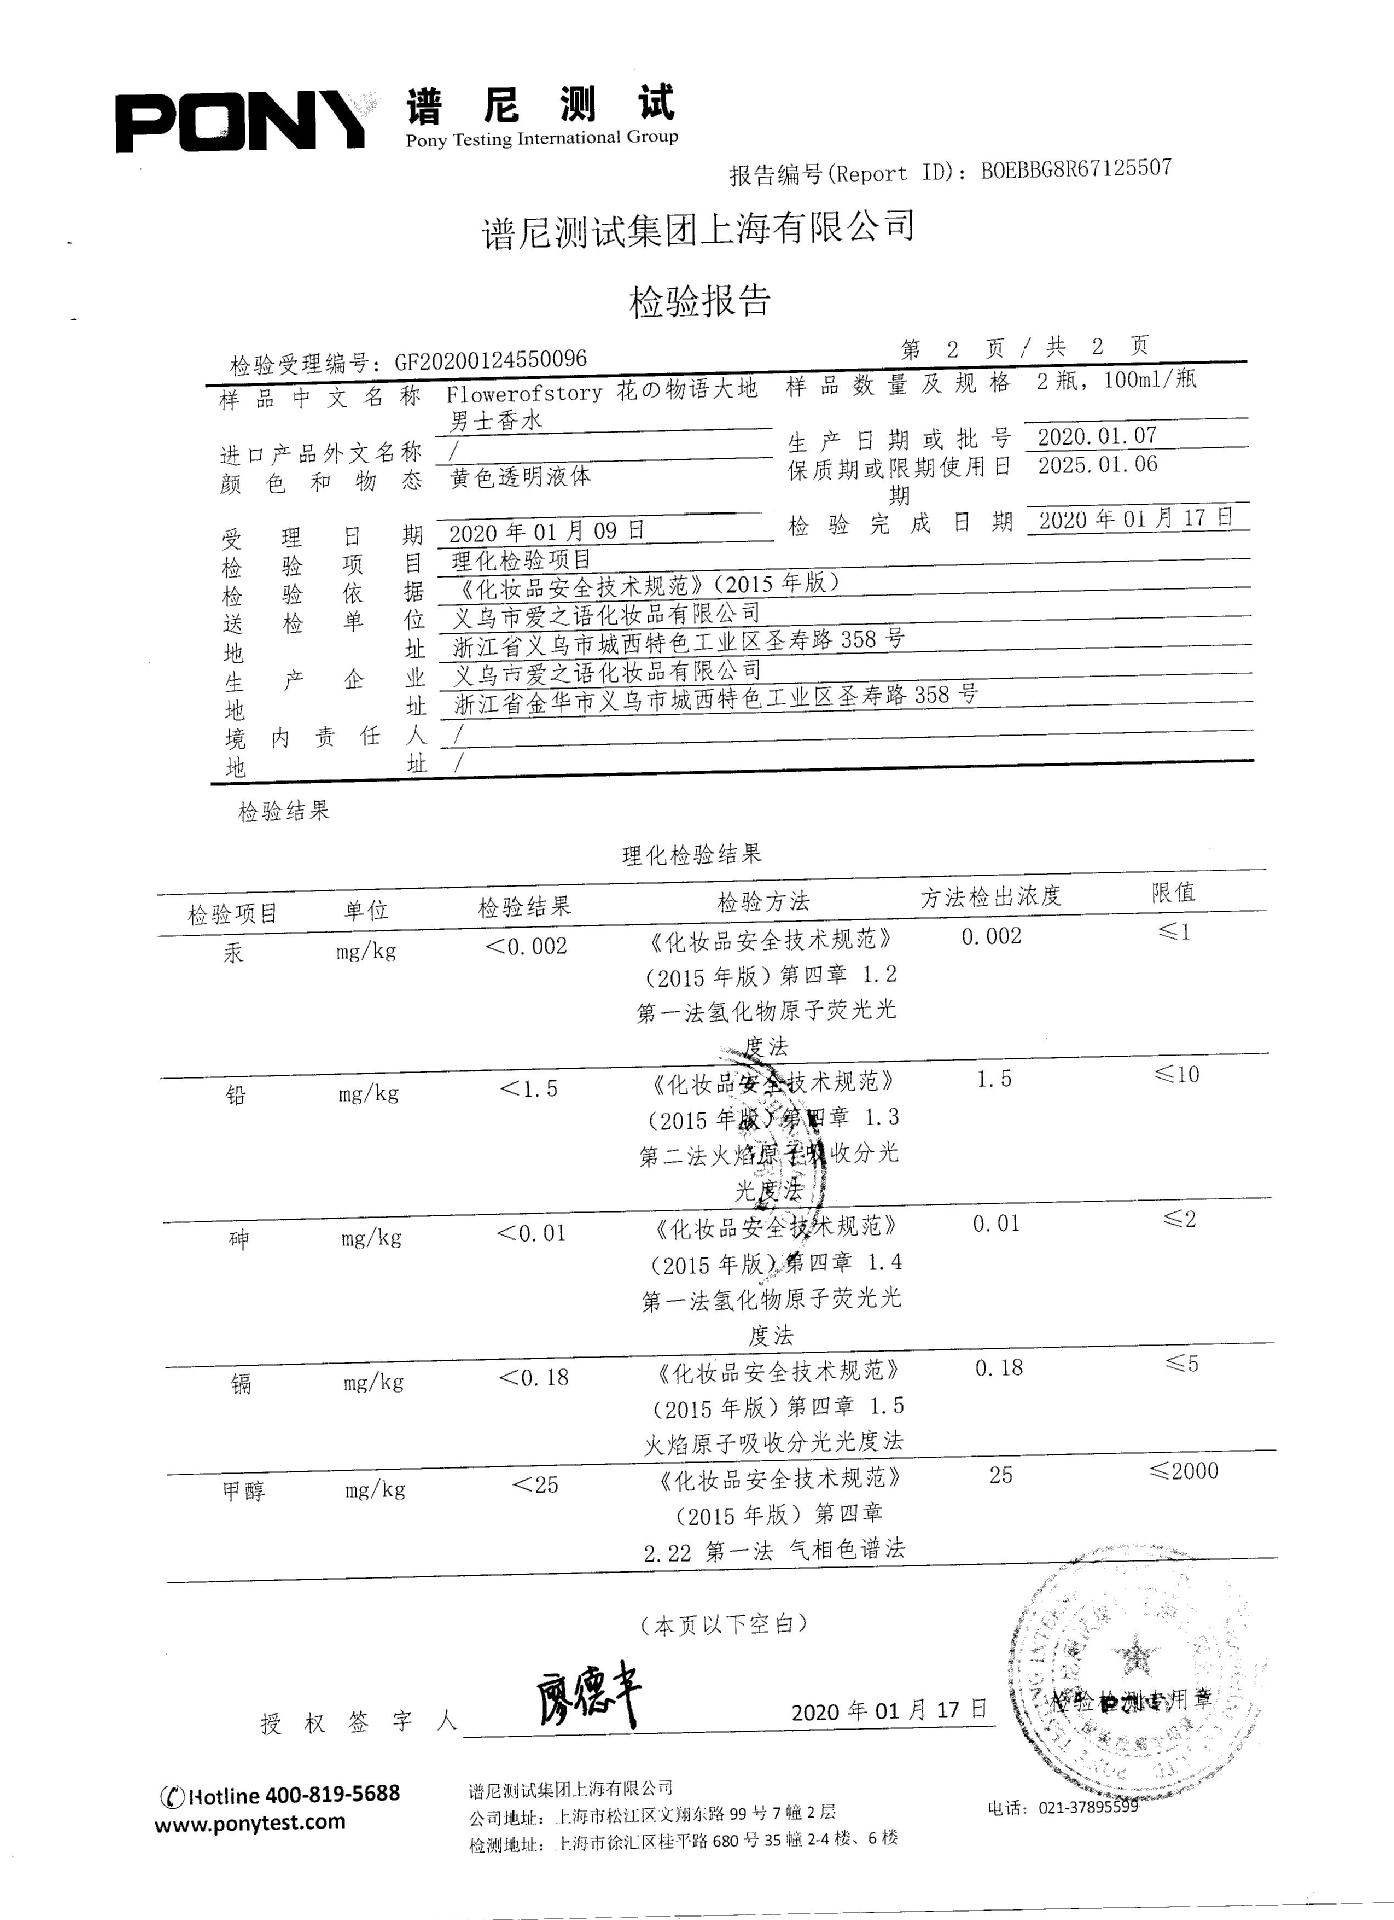 PONY 谱尼测试
Pony Testing International Group
报告编号(Report ID): BOEBBG8R67125507
谱尼测试集团上海有限公司
检验报告
检验受理编号: GF20200124550096 第 2 页/共 2 页
样品中文名称 Flowerofstory 花の物语大地 样品数量及规格 2瓶, 100ml/瓶
男士香水
进口产品外文名称 / 生产日期或批号 2020.01.07
颜色和物态 黄色透明液体 保质期或限期使用日 2025.01.06
期
受理日期 2020年01月09日 检验完成日期 2020年01月17日
检验项目 理化检验项目
检验依据 《化妆品安全技术规范》(2015年版)
送检单位 义乌市爱之语化妆品有限公司
地址 浙江省义乌市城西特色工业区圣寿路358号
生产企业 义乌市爱之语化妆品有限公司
地址 浙江省金华市义乌市城西特色工业区圣寿路358号
境内责任人 /
地址 /
检验结果
理化检验结果
检验项目 单位 检验结果 检验方法 方法检出浓度 限值
汞 mg/kg <0.002 《化妆品安全技术规范》 0.002 ≤1
(2015年版)第四章 1.2
第一法氢化物原子荧光光
度法
铅 mg/kg <1.5 《化妆品安全技术规范》 1.5 ≤10
(2015年版)第四章 1.3
第二法火焰原子吸收分光
光度法
砷 mg/kg <0.01 《化妆品安全技术规范》 0.01 ≤2
(2015年版)第四章 1.4
第一法氢化物原子荧光光
度法
镉 mg/kg <0.18 《化妆品安全技术规范》 0.18 ≤5
(2015年版)第四章 1.5
火焰原子吸收分光光度法
甲醇 mg/kg <25 《化妆品安全技术规范》 25 ≤2000
(2015年版)第四章
2.22 第一法 气相色谱法
(本页以下空白)
授权签字人 廖德丰 2020年01月17日 检验检测专用章
Hotline 400-819-5688
www.ponytest.com
谱尼测试集团上海有限公司
公司地址: 上海市松江区文翔东路99号7幢2层 电话: 021-37895599
检测地址: 上海市徐汇区桂平路680号35幢2-4楼、6楼